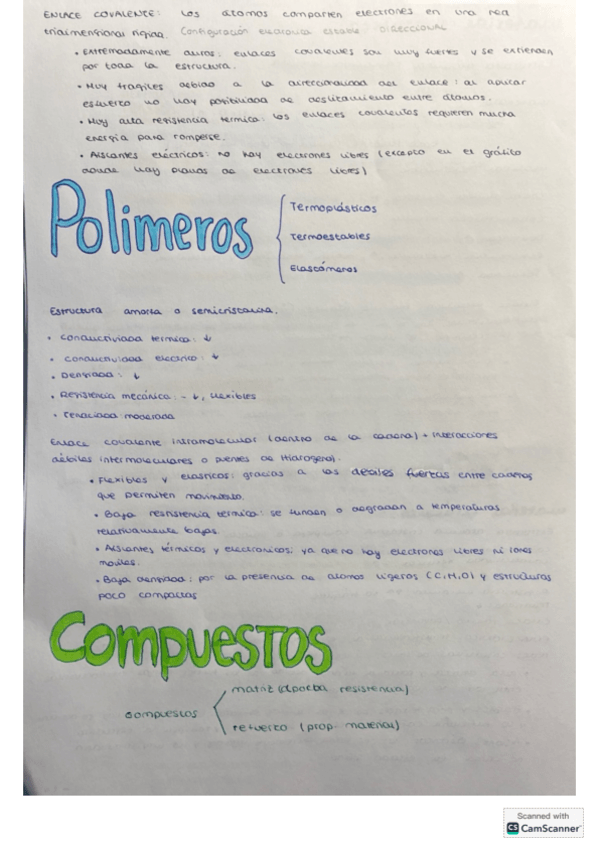 ENLACE COVALENTE: Los átomos comparten electrones en una red
tridimensional rígida. Configuración electrónica estable DIRECCIONAL
• Extremadamente duros: enlaces covalentes son muy fuertes y se extienden
por toda la estructura.
• Muy frágiles debido a la direccionalidad del enlace: al aplicar
esfuerzo no hay posibilidad de deslizamiento entre átomos.
• Muy alta resistencia térmica: los enlaces covalentes requieren mucha
energía para romperse.
• Aislantes eléctricos: no hay electrones libres (excepto en el grafito
donde hay planos de electrones libres)
Polimeros
Termoplásticos
Termoestables
Elastómeros
Estructura amorfa o semicristalina.
• Conductividad termica: ↓
• Conductividad electrica: ↓
• Densidad: ↓
• Resistencia mecánica: - ↓, flexibles
• Tenacidad moderada
Enlace covalente intramolecular (dentro de la cadena) + interacciones
débiles intermoleculares o puentes de Hidrogeno).
• Flexibles y elasticos: gracias a las débiles fuerzas entre cadenas
que permiten movimiento.
• Baja resistencia térmica: se funden o degradan a temperaturas
relativamente bajas.
• Aislantes térmicos y electronicos; ya que no hay electrones libres ni iones
moviles.
• Baja densidad: por la presencia de atomos ligeros (C, H, O) y estructuras
poco compactas
Compuestos
compuestos
matriz (aporta resistencia)
refuerzo (prop. material)
Scanned with
CS CamScanner